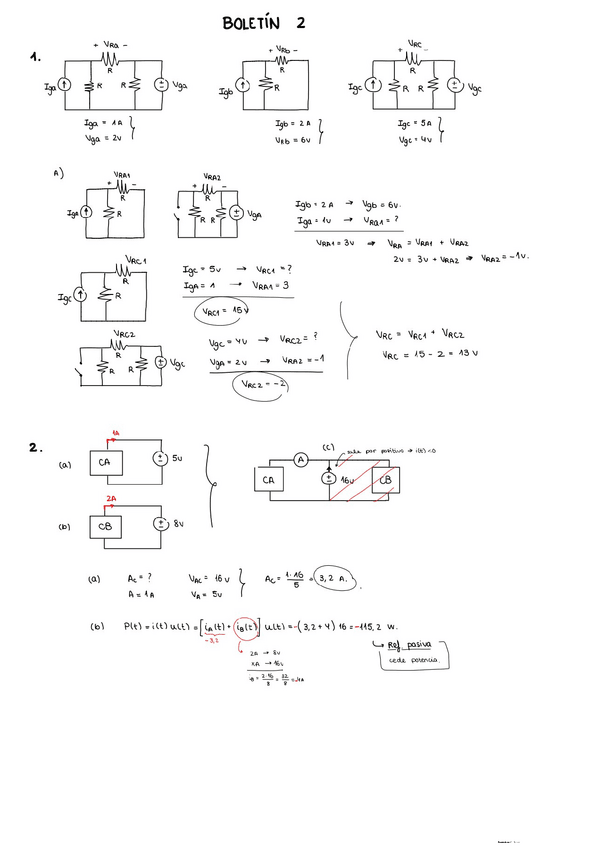 BOLETÍN 2
1.
+ VRa -
R
Iga
R
R
Vga
Iga = 1A
Vga = 2v
+ VRb -
R
Igb
R
Igb = 2A
VRb = 6v
+ VRC -
R
Igc
R
R
Vgc
Igc = 5A
Vgc = 4v
A)
VRA1
+ -
R
IgA
R
VRA2
+ -
R
R
R
VgA
Igb = 2A → Vgb = 6v.
Iga = 1v → VRa1 = ?
VRA1 = 3v ⇒ VRA = VRA1 + VRA2
2v = 3v + VRA2 ⇒ VRA2 = -1v.
VRC1
R
Igc
R
Igc = 5v → VRC1 = ?
IgA = 1 → VRA1 = 3
VRC1 = 15v
VRC2
R
R
R
Vgc
Vgc = 4v → VRC2 = ?
VgA = 2v → VRA2 = -1
VRC2 = -2
VRC = VRC1 + VRC2
VRC = 15 - 2 = 13 v
2.
(a)
1A
CA
5v
(b)
2A
CB
8v
(c)
sale por positivo → i(t) < 0
A
CA
16v
CB
(a) AC = ? VAC = 16 v
A = 1A VA = 5v
AC = 1·16 / 5 = 3,2 A.
(b) P(t) = i(t) u(t) = [iA(t) + iB(t)] u(t) = -(3,2 + 4) 16 = -115,2 W.
-3,2
2A → 8v
xA → 16v
iB = 2·16 / 8 = 32 / 8 = 4A
↳ Ref. pasiva
cede potencia.